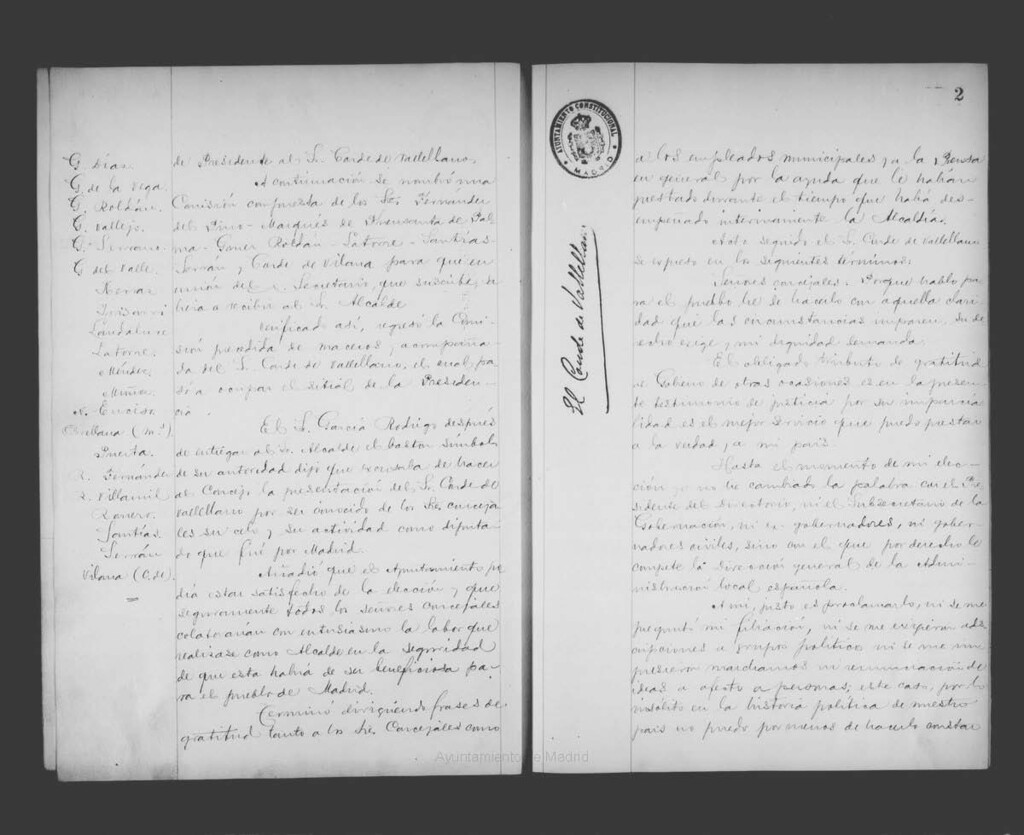 G. Días.
G. de la Vega.
G. Roldán.
G. Vallejo.
G. Serrano.
G. del Valle.
Latorre.
Méndez.
Muñoz.
N. Enciso.
Orellana (M.)
Puerta.
R. Fernández
R. Villamil
Romero.
Santías.
Serrán
Vilana (C. de).
de Presidente al Sr. Conde de Vallellano.
A continuación se nombró una
Comisión compuesta de los Sres. Fernández
del Pino - Marqués de Fuensanta de Pal-
ma - Gómez Roldán - Latorre - Santías -
Serrán y Conde de Vilana para que en
unión del Secretario, que suscribe, sa-
liera a recibir al Sr. Alcalde
Verificado así, regresó la Comi-
sión precedida de maceros y acompaña-
da del Sr. Conde de Vallellano, el cual pa-
só a ocupar el sitial de la Presiden-
cia.
El Sr. García Rodrigo después
de entregar al Sr. Alcalde el bastón símbolo
de su autoridad dijo que excusaba de hacer
al Concejo la presentación del Sr. Conde de
Vallellano por ser conocido de los Sres. conceja-
les su celo y su actividad como diputa-
do que fué por Madrid.
Añadió que el Ayuntamiento po-
día estar satisfecho de la elección y que
seguramente todos los señores concejales
colaborarían con entusiasmo la labor que
realizase como Alcalde en la seguridad
de que esta habría de ser beneficiosa pa-
ra el pueblo de Madrid.
Terminó dirigiendo frases de
gratitud tanto a los Sres. Concejales como
AYUNTAMIENTO CONSTITUCIONAL
MADRID
El Conde de Vallellano.
2
a los empleados municipales y a la Prensa
en general por la ayuda que le habían
prestado durante el tiempo que había des-
empeñado interinamente la Alcaldía.
Acto seguido el Sr. Conde de Vallellano
se expresó en los siguientes términos:
Señores concejales: Porque hablo pa-
ra el pueblo he de hacerlo con aquella clari-
dad que las circunstancias imponen, su de-
recho exige y mi dignidad demanda.
El obligado tributo de gratitud
al Gobierno de otras ocasiones es en la presen-
te testimonio de justicia por su imparcia-
lidad es el mejor servicio que puedo prestar
a la verdad y a mi país.
Hasta el momento de mi elec-
ción yo no he cambiado la palabra con el Pre-
sidente del Directorio, ni el Subsecretario de la
Gobernación, ni ex-gobernadores, ni gober-
nadores civiles, sino con el que por derecho le
compete la Dirección general de la Admi-
nistración local española.
A mí, justo es proclamarlo, ni se me
preguntó mi filiación, ni se me exigieron ads-
cripciones a grupo político ni se me im-
pusieron marchamos ni renunciación de
ideas o afecto a personas; este caso, por lo
insólito en la historia política de nuestro
país no puedo por menos de hacerlo constar
Ayuntamiento de Madrid